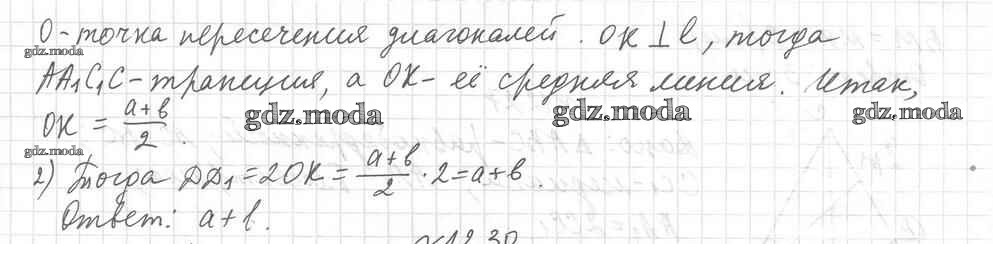 O - точка пересечения диагоналей. OK ⊥ l, тогда
gdz.moda
AA₁C₁C - трапеция, а OK - её средняя линия. Итак,
OK = (a+b)/2.
gdz.moda
gdz.moda
gdz.moda
gdz.moda
2) Тогда DD₁ = 2OK = (a+b)/2 · 2 = a+b.
Ответ: a+b.